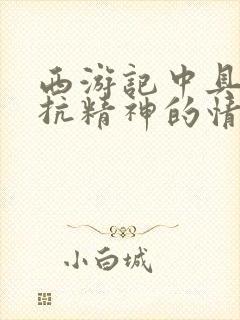 西游记中具
抗精神的情
小白城